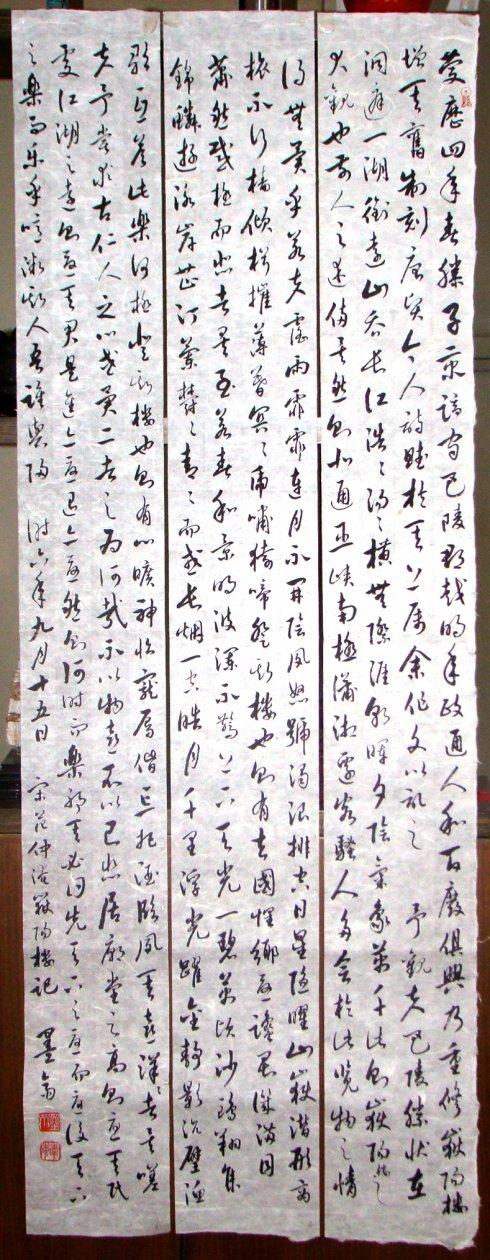 慶曆四年春滕子京謫守巴陵郡越明年政通人和百廢俱興乃重修嶽陽樓
增其舊制刻唐賢今人詩賦於其上属余作文以記之 予觀夫巴陵勝狀在
洞庭一湖銜遠山吞長江浩々湯々橫無際涯朝暉夕陰氣象萬千此則嶽陽樓之
大觀也前人之述備矣然則北通巫峽南極瀟湘遷客騷人多會於此覽物之情
得無異乎若夫霪雨霏霏連月不開陰風怒號濁浪排空日星隱曜山嶽潛形商
旅不行檣傾楫摧薄暮冥々虎嘯猿啼登斯樓也則有去國懷鄉憂讒畏譏滿目
蕭然感極而悲者矣至若春和景明波瀾不驚上下天光一碧萬頃沙鷗翔集
錦鱗游泳岸芷汀蘭鬱々青々而或長烟一空皓月千里浮光躍金靜影沉璧漁
歌互答此樂何極登斯樓也則有心曠神怡寵辱偕忘把酒臨風其喜洋々者矣嗟
夫予嘗求古仁人之心或異二者之為何哉不以物喜不以己悲居廟堂之高則憂其民
處江湖之遠則憂其君是進亦憂退亦憂然則何時而樂耶其必曰先天下之憂而憂後天下
之樂而樂乎噫微斯人吾誰與歸 時六年九月十五日 宋范仲淹嶽陽樓記 墨翁